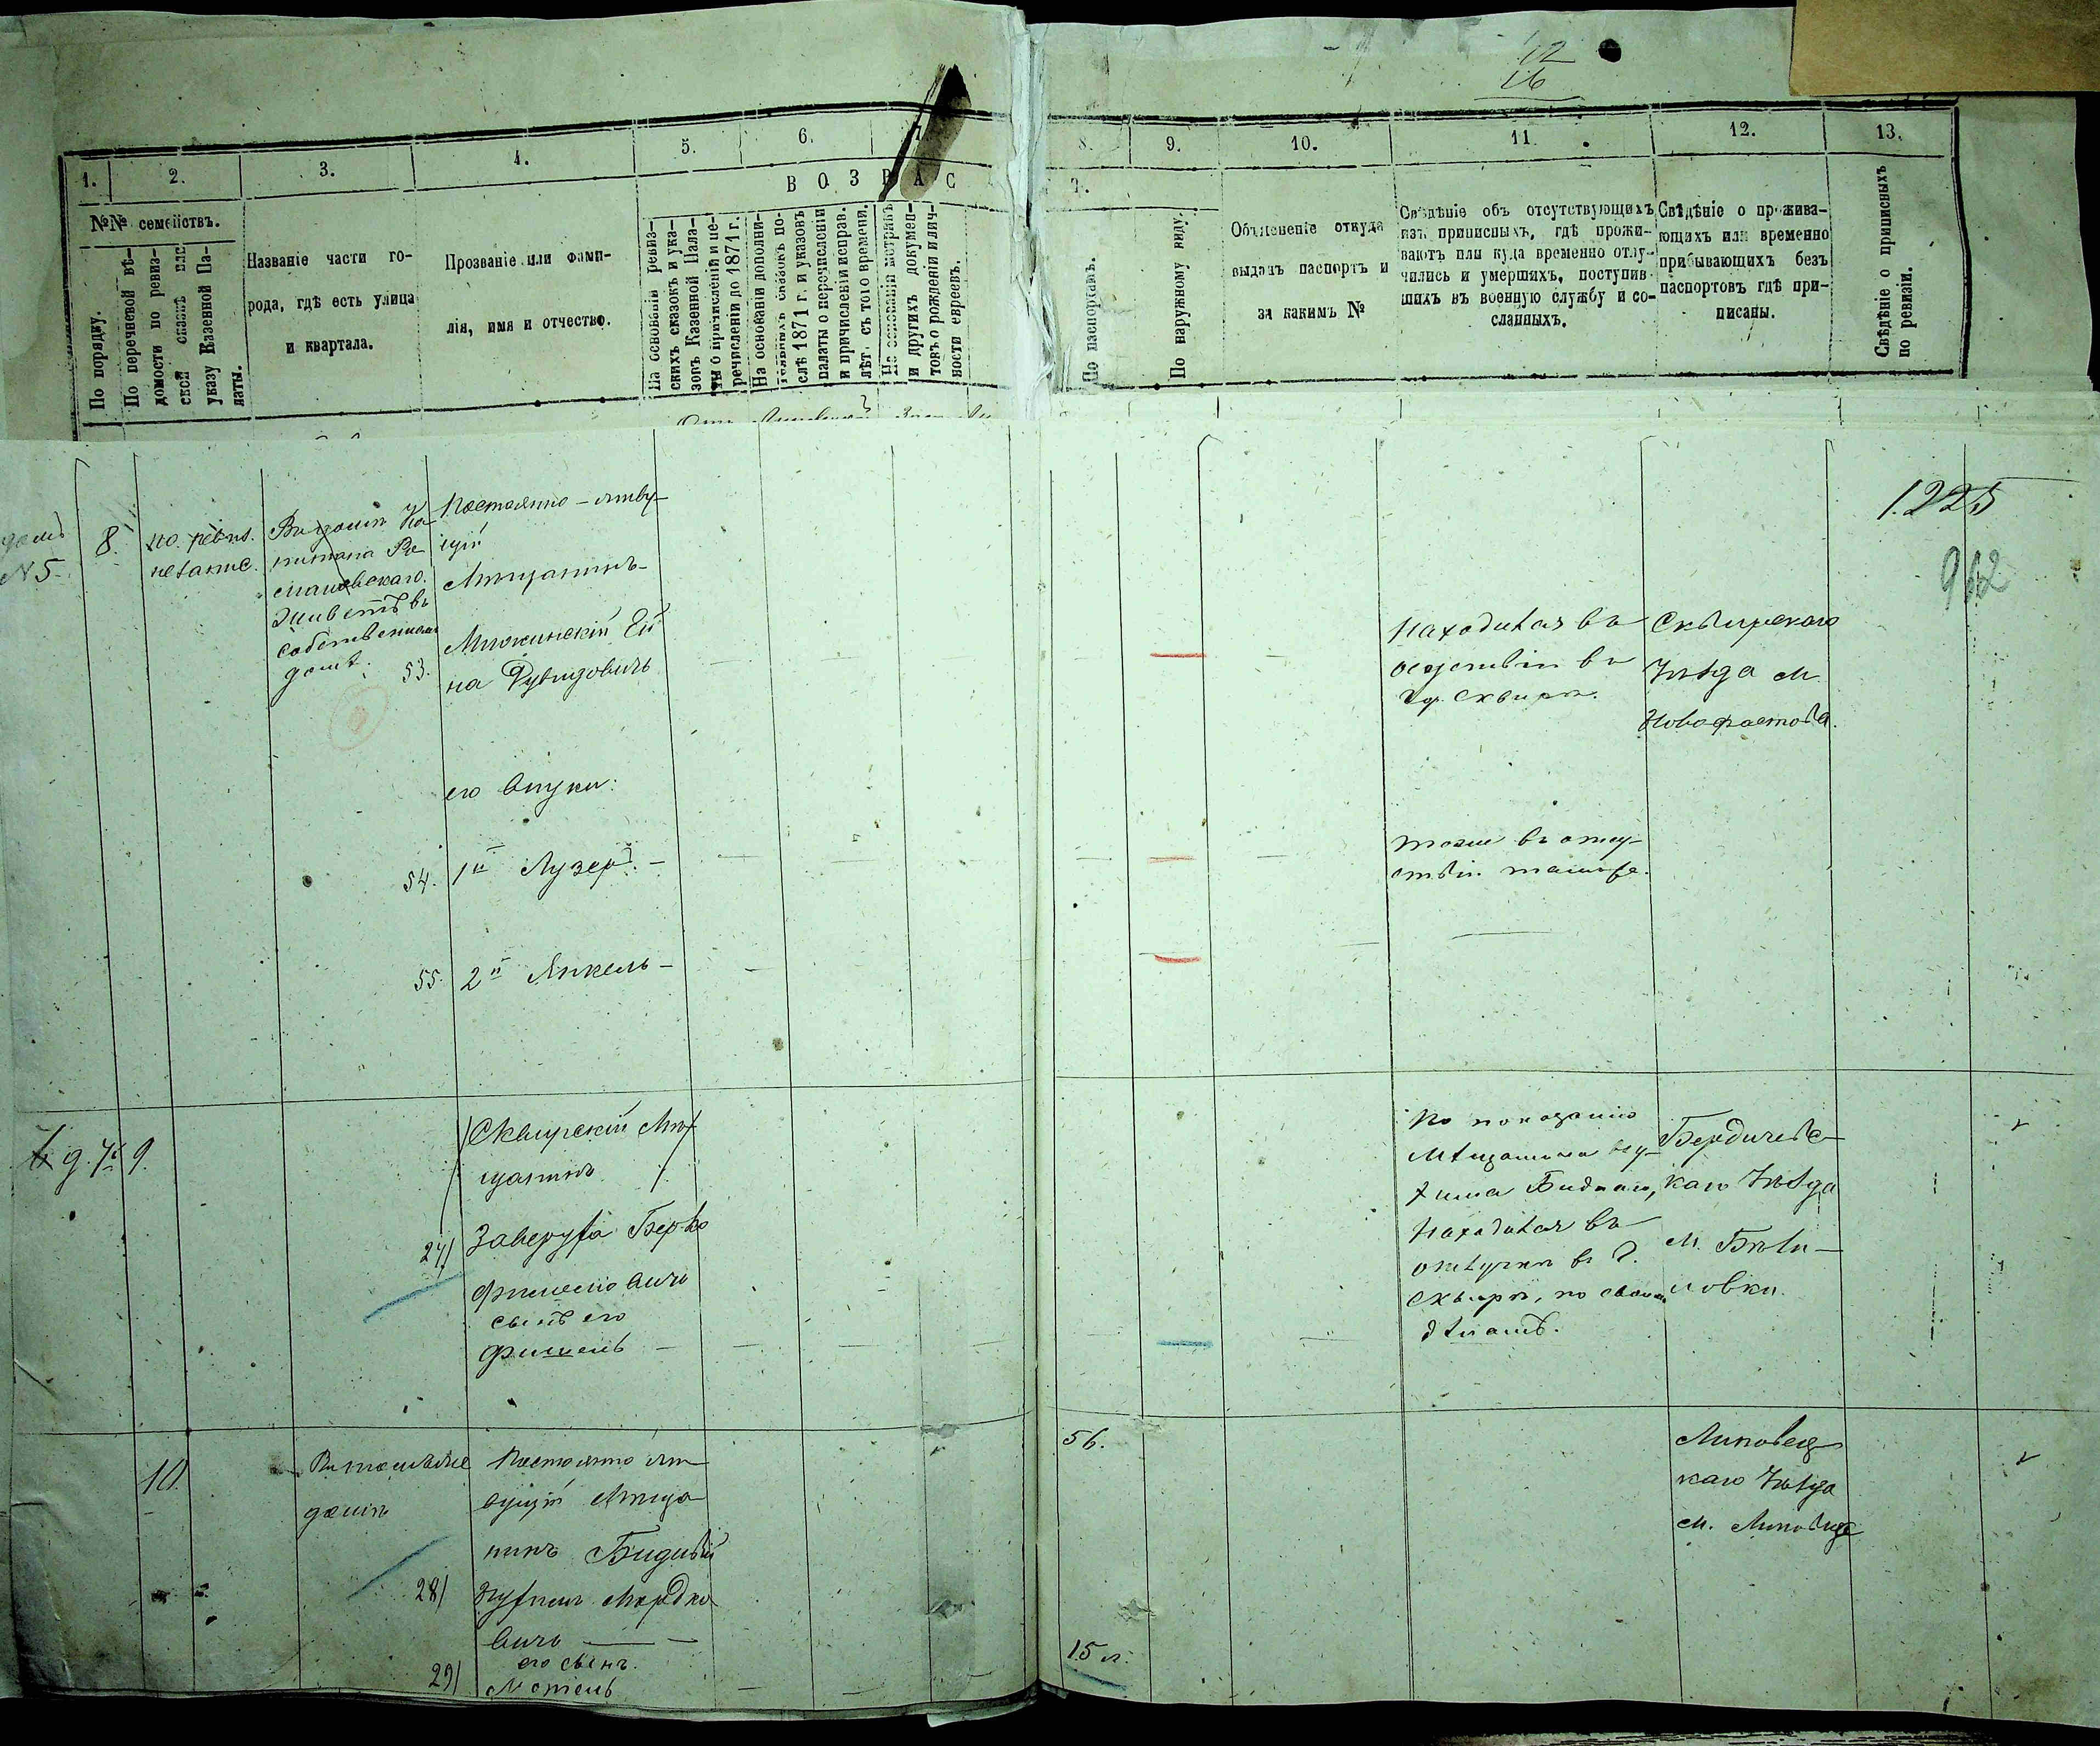 12
16
1.
2.
3.
4.
5.
6.
7.
8.
9.
10.
11.
12.
13.
В О З Р А С Т.
№№ семействъ.
По порядку.
По перечневой вѣ-
домости по ревиз-
ской сказкѣ или
указу Казенной Па-
латы.
Названіе части го-
рода, гдѣ есть улица
и квартала.
Прозваніе или фами-
лія, имя и отчество.
На основаніи ревиз-
скихъ сказокъ и ука-
зовъ Казенной Пала-
ты о причисленіи и пе-
речисленіи до 1871 г.
На основаніи дополни-
тельныхъ сказокъ по-
слѣ 1871 г. и указовъ
палаты о перечисленіи
и причисленіи исправ.
лѣт. съ того времени.
На основаніи метрикъ
и другихъ докумен-
товъ о рожденіи и лич-
ности евреевъ.
По паспортамъ.
По наружному виду.
Объясненіе откуда
выданъ паспортъ и
за какимъ №
Свѣдѣніе объ отсутствующихъ
изъ приписныхъ, гдѣ прожи-
ваютъ или куда временно отлу-
чились и умершихъ, поступив-
шихъ въ военную службу и со-
сланныхъ.
Свѣдѣніе о прожива-
ющихъ или временно
прибывающихъ безъ
паспортовъ гдѣ при-
писаны.
Свѣдѣніе о приписныхъ
по ревизіи.
домъ
№ 5.
8.
по ревиз.
незапис.
Живетъ въ
собственномъ
домѣ.
Постоянно-живу-
щій
Мѣщанинъ-
53.
на Дувидовичъ
Находится въ
отсутствіи въ
гор. Сквирѣ.
Сквирскаго
Уѣзда м.
Новофастова.
1.225
962
его внуки:
54.
1й Лузеръ. -
тоже въ отсу-
ствіи тамъ же.
55.
2й Янкель -
9.
Сквирскій Мѣ-
щанинъ
27)
Заверуха Берко
Фишелювичъ
сынъ его
Фишель -
По показанію
Мѣщанина
Находится въ
отлучкѣ въ г.
Сквирѣ, по своимъ
дѣламъ.
Бердичевс-
каго Уѣзда
м. Бѣли-
ловки.
10.
Въ томъ же
домѣ
Постоянно жи-
вущій Мѣща-
нинъ
28)
Мордко
вичъ
его сынъ.
29)
Мотель
56.
15 л.
Липовец-
каго Уѣзда
м. Липовца